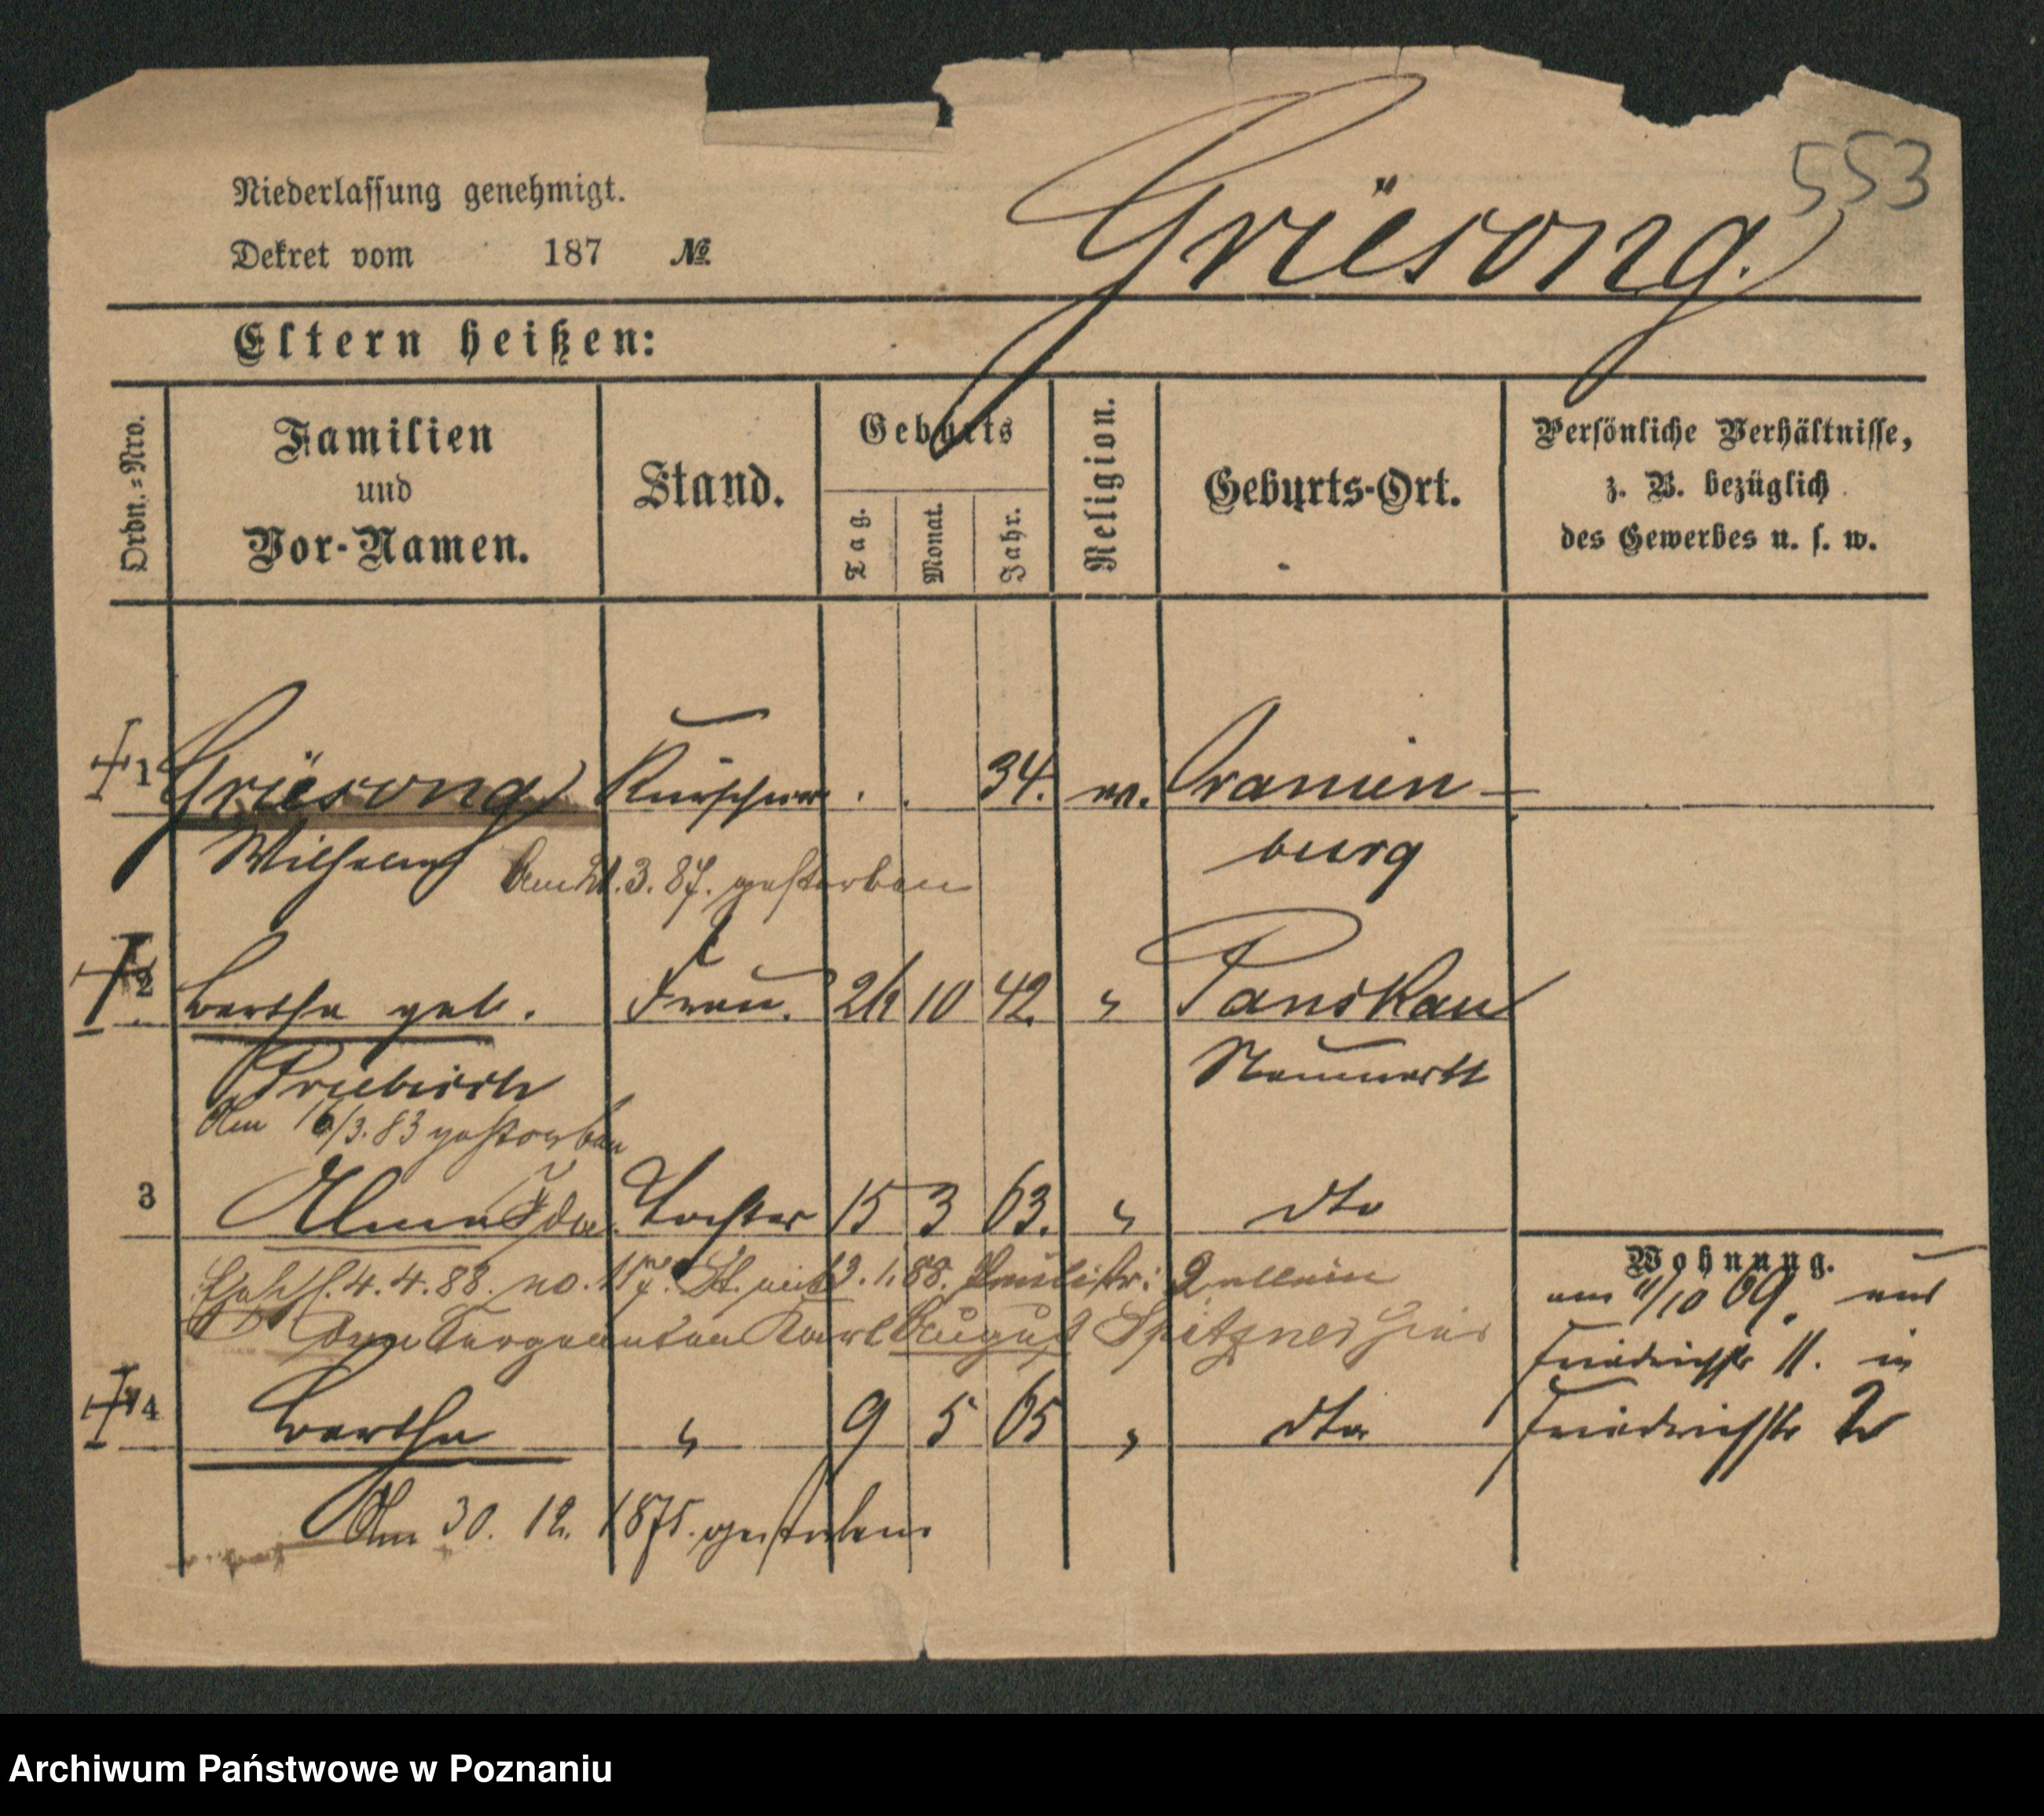 553
Niederlassung genehmigt.
Dekret vom 187 №
Griësong.
Eltern heißen:
Ordn.-Nro.
Familien
und
Vor-Namen.
Stand.
Geburts
Tag.
Monat.
Jahr.
Religion.
Geburts-Ort.
Persönliche Verhältnisse,
z. B. bezüglich
des Gewerbes u. s. w.
1 Griësong Kürschner . . 34. ev. Oranien-
Wilhelm burg
Am 21.3.87. gestorben
2 Bertha geb. Frau. 10 42. " Panskau
Neumark
Am 16/3.83 gestorben
3 Alma Ida. Tochter 15 3 63. " dto
4.4.88. no. 2.1.88. 2 allein
dem Sergeanten Karl August Spitzner hier
4 Bertha " 9 5 65 " dto
Am 30. 12. 1875. gestorben.
Wohnung.
am 11/10 69. aus
Friedrichstr 11. in
Friedrichstr 2
Archiwum Państwowe w Poznaniu